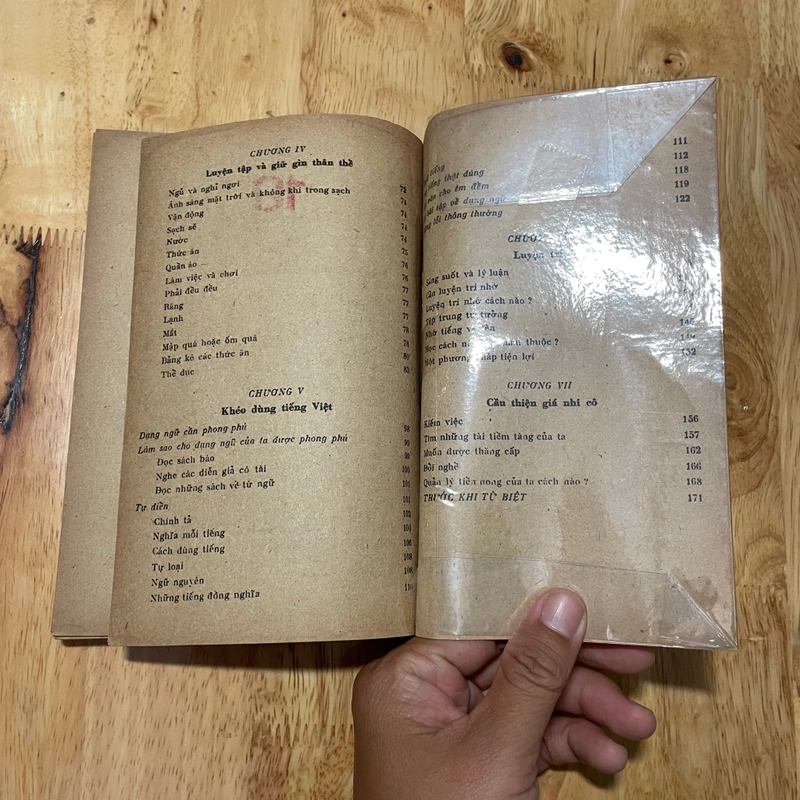 CHƯƠNG IV
Luyện tập và giữ gìn thân thể
Ngủ và nghỉ ngơi 72
Ánh sáng mặt trời và không khí trong sạch 74
Vận động 74
Sạch sẽ 74
Nước 74
Thức ăn 75
Quần áo 76
Làm việc và chơi 77
Phải đều đều 77
Răng 77
Lạnh 77
Mắt 78
Mập quá hoặc ốm quá 78
Bảng kê các thức ăn 80
Thể dục 83
CHƯƠNG V
Khéo dùng tiếng Việt
Dạng ngữ cần phong phú 98
Làm sao cho dạng ngữ của ta được phong phú 99
Đọc sách báo 99
Nghe các diễn giả có tài 100
Đọc những sách về từ ngữ 101
Tự điển 101
Chính tả 102
Nghĩa mỗi tiếng 104
Cách dùng tiếng 106
Tự loại 108
Ngữ nguyên 108
Những tiếng đồng nghĩa
111
112
thật đúng 118
cho êm đềm 119
tập về dạng ngữ 122
lỗi thông thường
CHƯƠNG
Luyện trí
Sáng suốt và lý luận
Cần luyện trí nhớ
Luyện trí nhớ cách nào ?
Tập trung tư tưởng
Nhờ tiếng
Học cách thuộc ?
Một phương pháp tiện lợi 152
CHƯƠNG VII
Cầu thiện giá nhi cô
Kiếm việc 156
Tìm những tài tiềm tàng của ta 157
Muốn được thăng cấp 162
Đổi nghề 166
Quản lý tiền nong của ta cách nào ? 168
TRƯỚC KHI TỪ BIỆT 171